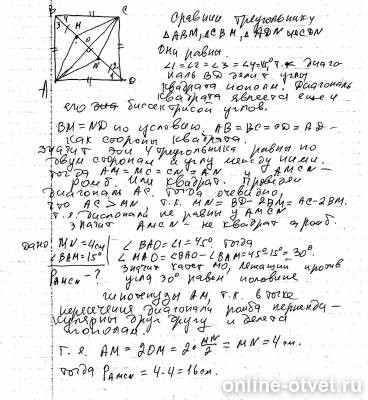 B C
3 4
M
O
N
1 2
A D
Сравним треугольники
△ABM, △CBM, △ADN и △CDN
Они равны.
∠1=∠2=∠3=∠4=45° т.к. диаго
наль BD делит углы
квадрата пополам. Диагональ
квадрата является еще и
его биссектрисой углов.
BM=ND по условию, AB=BC=CD=AD-
как стороны квадрата.
Значит эти 4 треугольника равны по
двум сторонам и углу между ними.
Тогда AM=MC=CN=AN и AMCN-
ромб или квадрат. Проведем
диагональ AC. Тогда очевидно,
что AC > MN, т.к. MN=BD-2BM=AC-2BM.
т.е. диагонали не равны у AMCN
значит AMCN- не квадрат а ромб.
Дано: MN=4см
∠BAM=15°
P_AMCN-?
∠BAO=∠1=45°, тогда
∠MAO=∠BAO-∠BAM=45°-15°=30°.
Значит катет MO, лежащий против
угла 30° равен половине
гипотенузы AM, т.к. в точке
пересечения диагонали ромба перпенди-
кулярны друг другу и делятся
пополам.
т.е. AM=2OM=2·MN/2=MN=4см.
тогда P_AMCN=4·4=16см.
online-otvet.ru